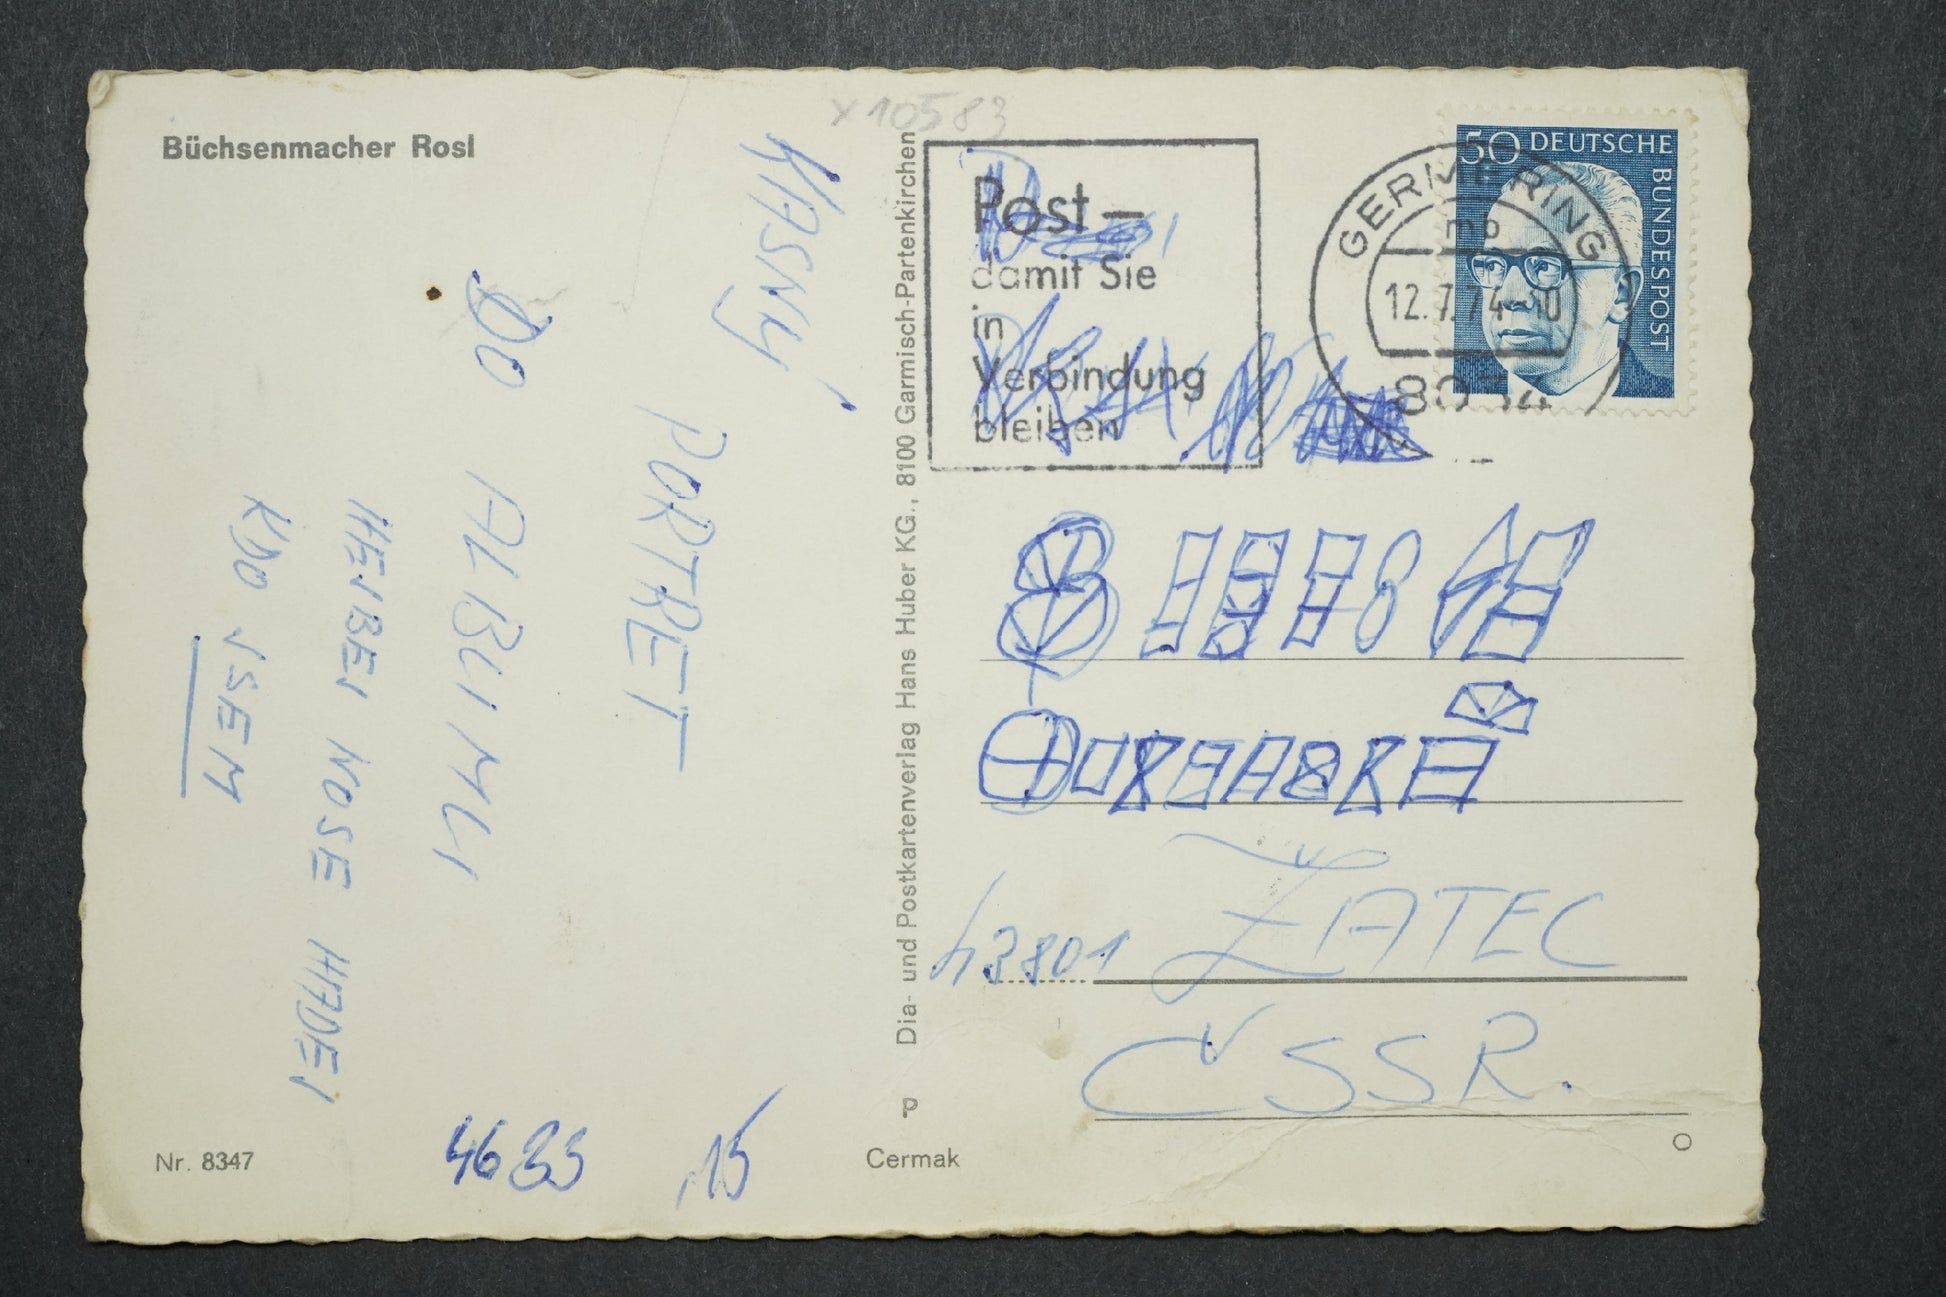 Büchsenmacher Rosl
x 10583
KRASNY
PORTRET
DO ALBUMU
HEIBEI NOSE HADEI
KDO JSEM
4633
15
Nr. 8347
Dia- und Postkartenverlag Hans Huber KG., 8100 Garmisch-Partenkirchen
Cermak
Post –
damit Sie
in
Verbindung
bleiben
GERMERING
mb
12.7.74-10
8034
50 DEUTSCHE
BUNDESPOST
43801 ŽATEC
ČSSR.